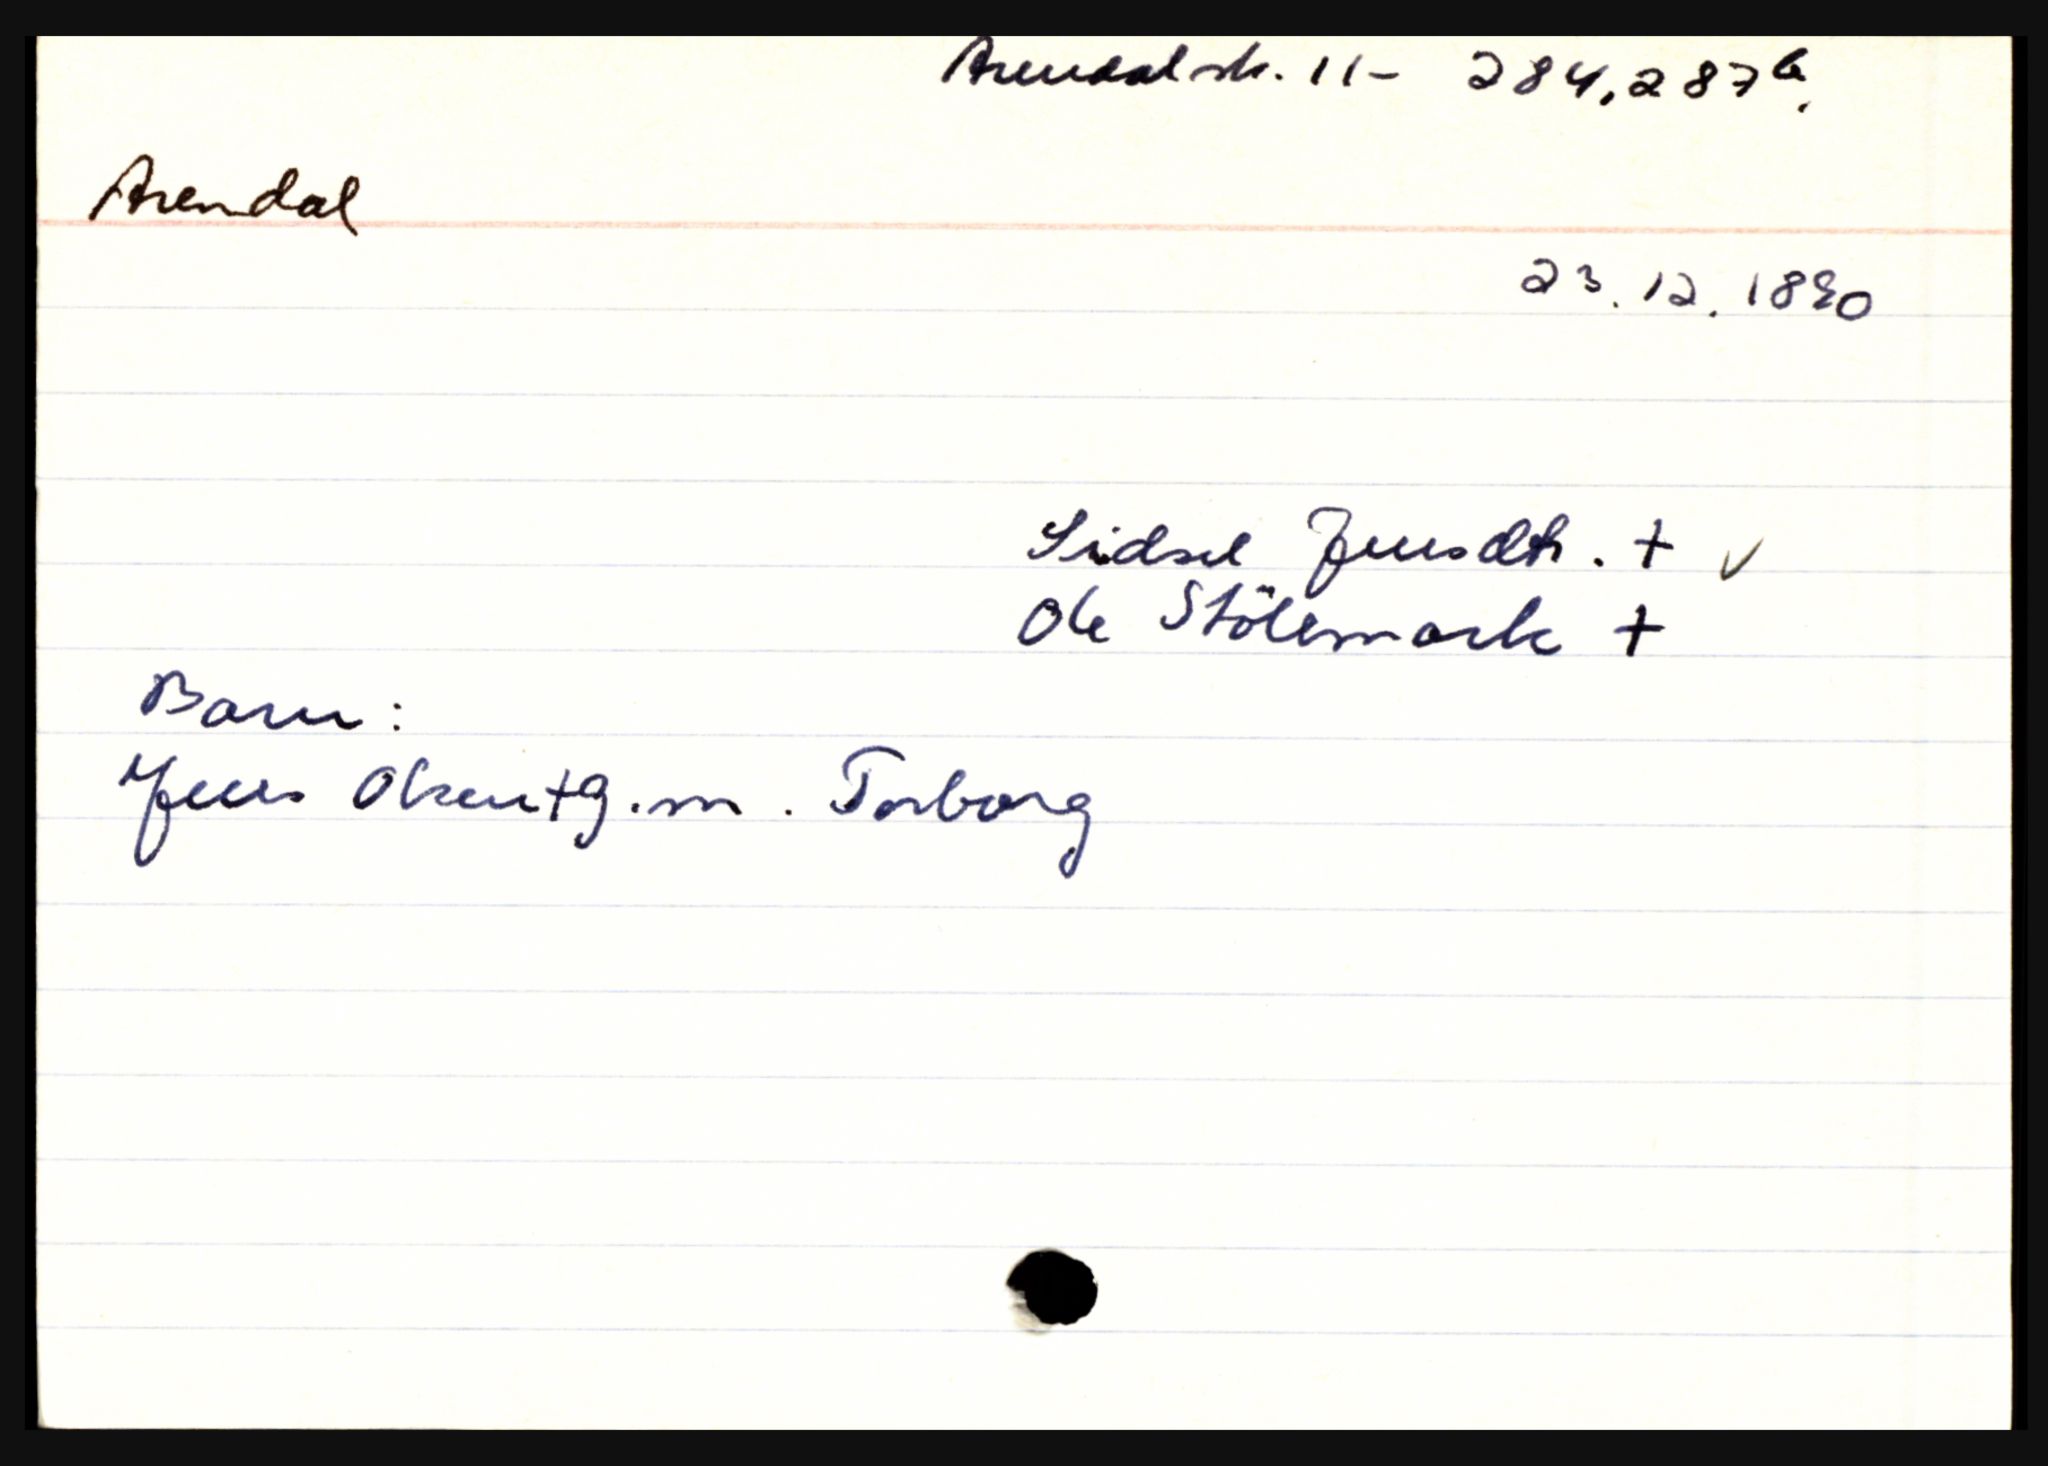 Arendal sk. 11- 284, 287b.
Arendal
23.12.1820
Sidsel Jensdtr. + ✓
Ole Stölemark +
Barn:
Jens Olsen + g.m. Torborg